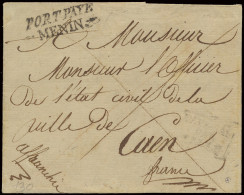 PORT PAYÉ
MENIN
Monsieur
Monsieur l'officier
de l'état civil de la
ville de
Caen
france
affranchie